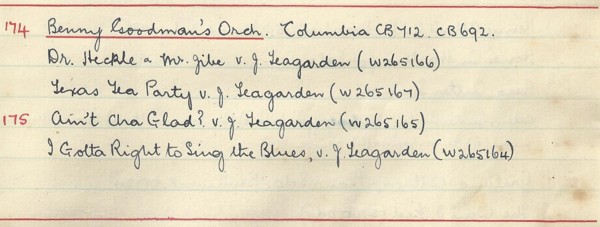 174 Benny Goodman's Orch. Columbia CB712. CB692.
Dr. Heckle a Mr. Jibe v. J. Teagarden (W265166)
Texas Tea Party v. J. Teagarden (W265167)
175 Ain't Cha Glad? v. J. Teagarden (W265165)
I Gotta Right to Sing the Blues, v. J. Teagarden (W265164)